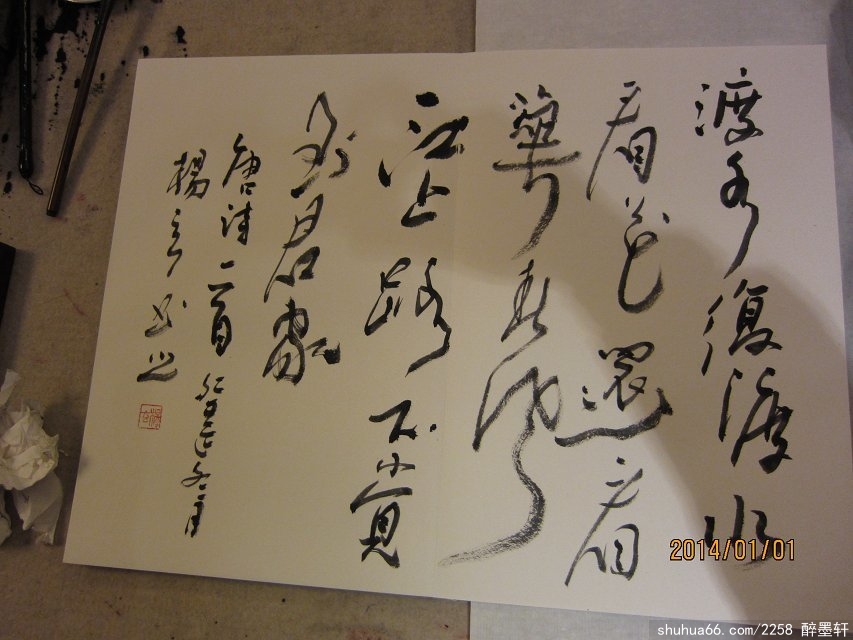 渡水復渡水
看花還看
華春風
江上路不覺
到君家
唐詩一首 冬月
楊 書
2014/01/01
shuhua66.com/2258 醉墨轩